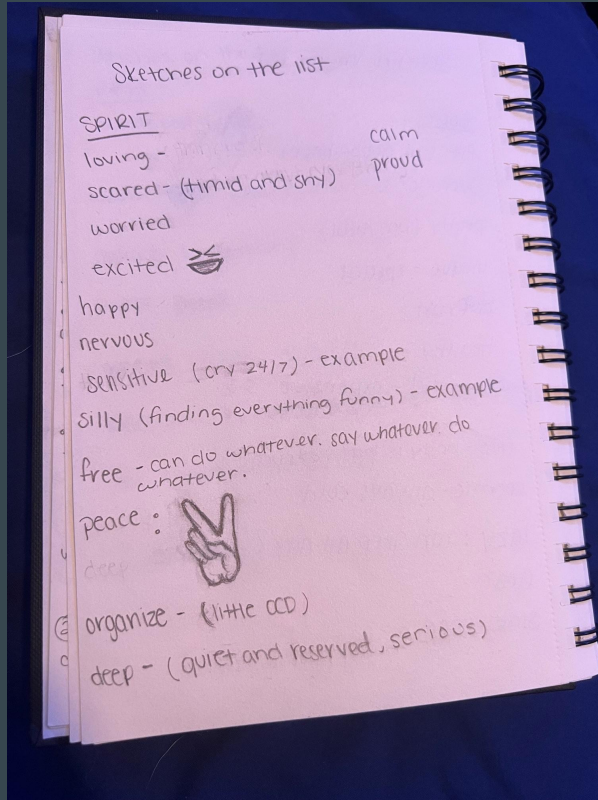 Sketches on the list
SPIRIT
loving -
calm
scared - (timid and shy)
proud
worried
excited
happy
nervous
sensitive (cry 24/7) - example
silly (finding everything funny) - example
free - can do whatever. say whatever. do
whatever.
peace :
deep
organize - (little OCD)
deep - (quiet and reserved, serious)